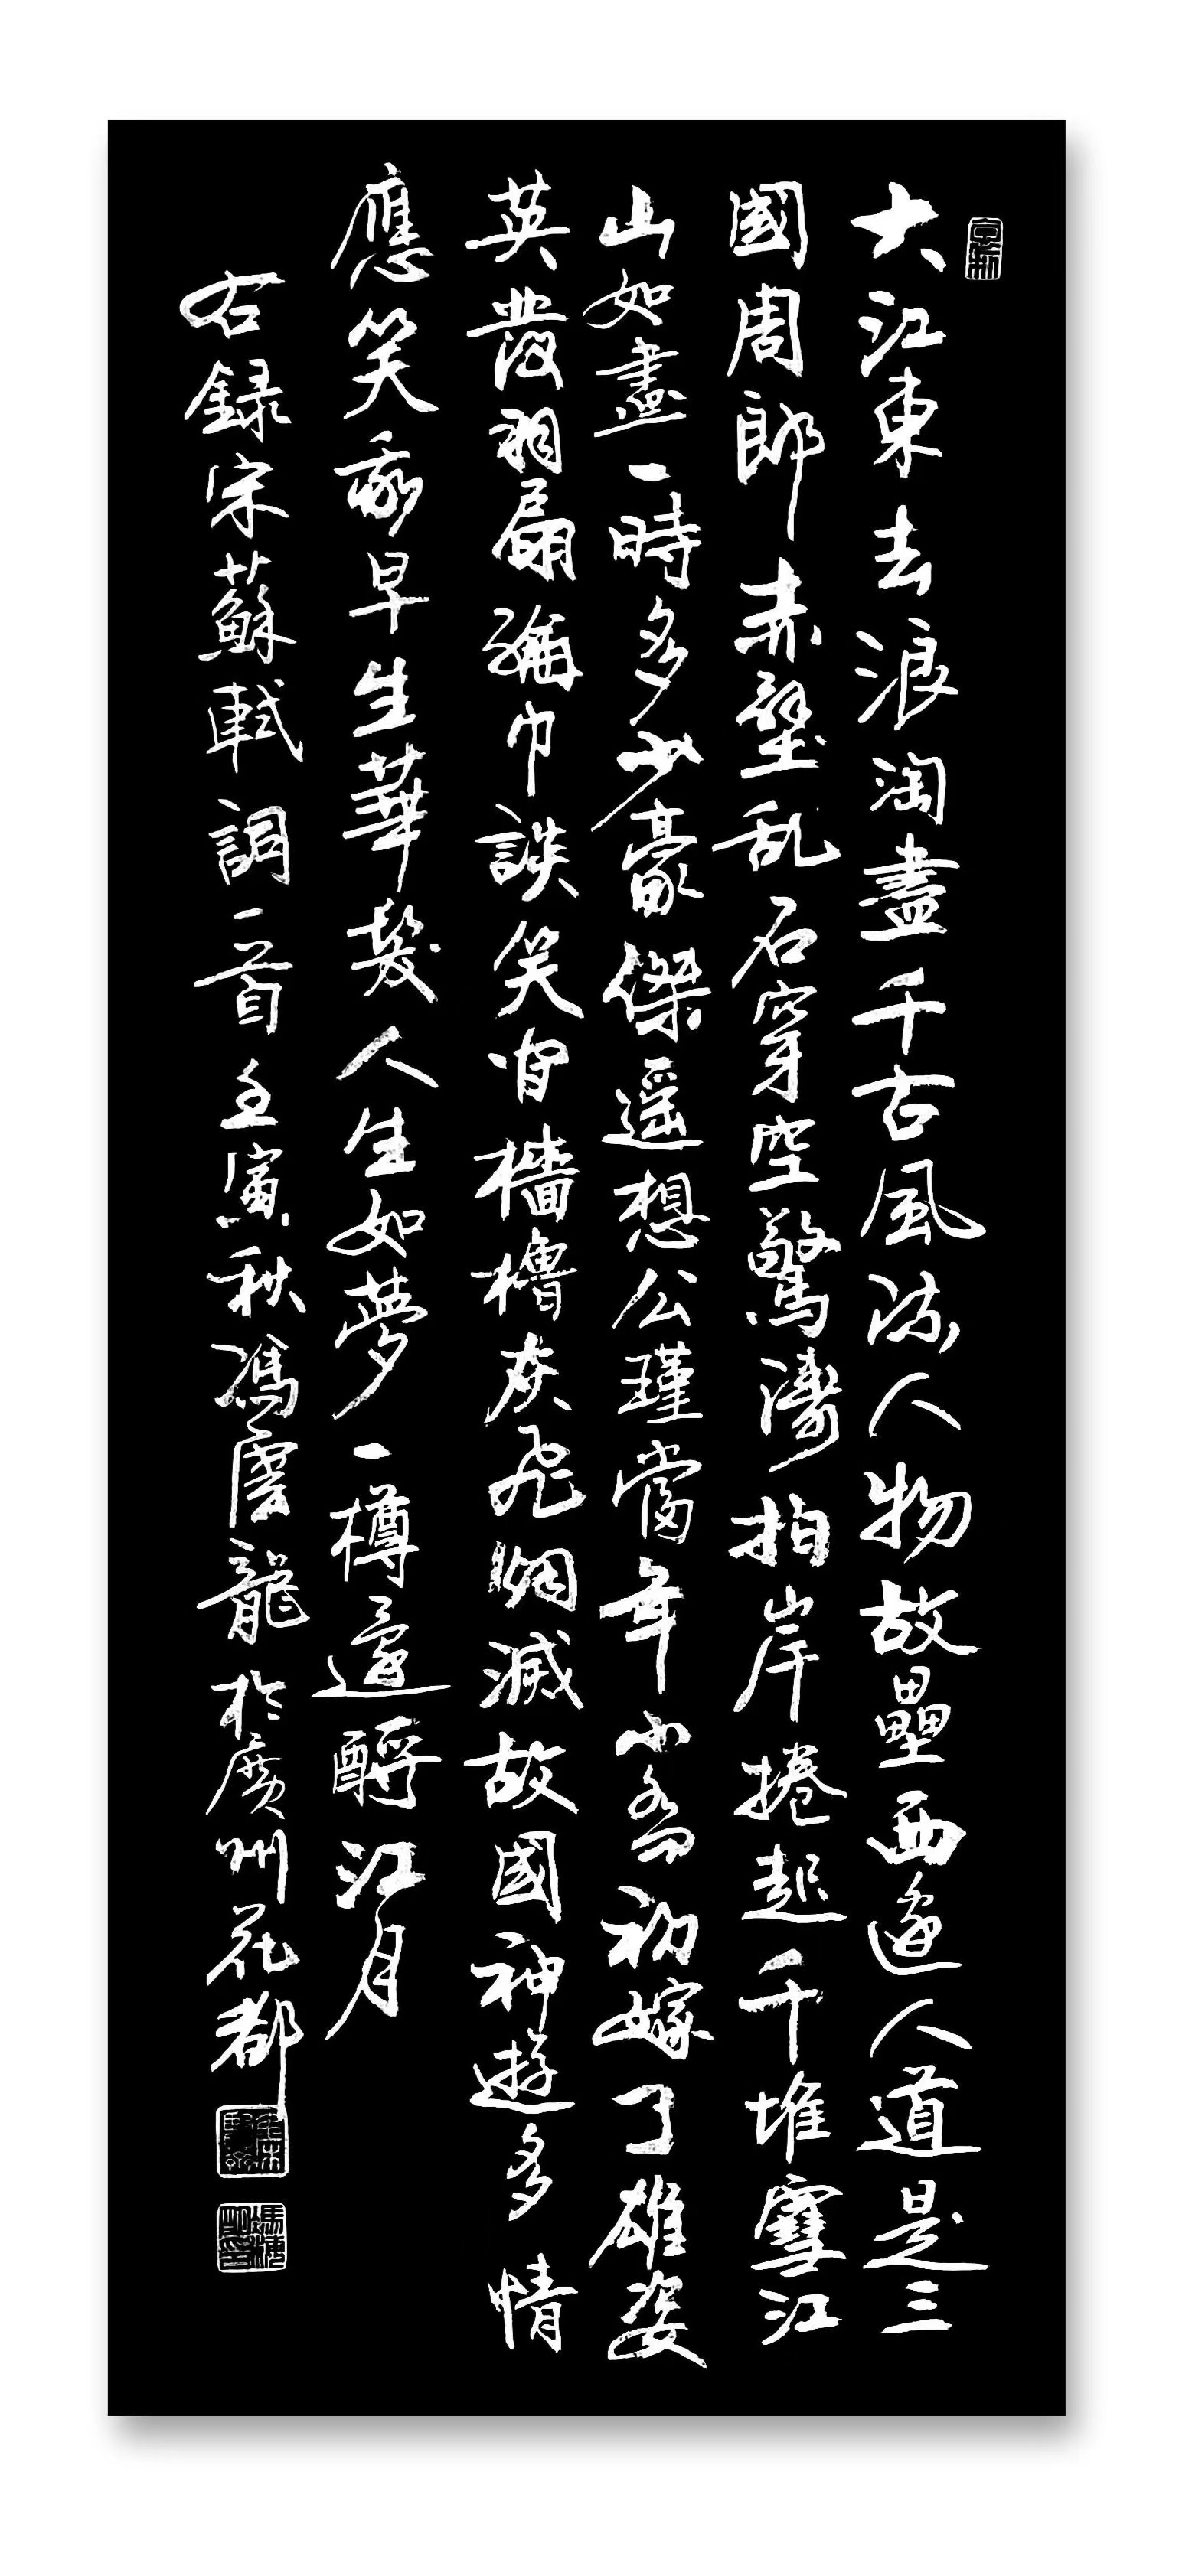 大江東去浪淘盡千古風流人物故壘西邊人道是三
國周郎赤壁乱石穿空驚濤拍岸捲起千堆雪江
山如畫一時多少豪傑遥想公瑾當年小喬初嫁了雄姿
英發羽扇綸巾談笑间檣櫓灰飛烟滅故國神遊多情
應笑我早生華髮人生如夢一樽還酹江月
右録宋蘇軾詞一首壬寅秋馮雲龍於廣州花都